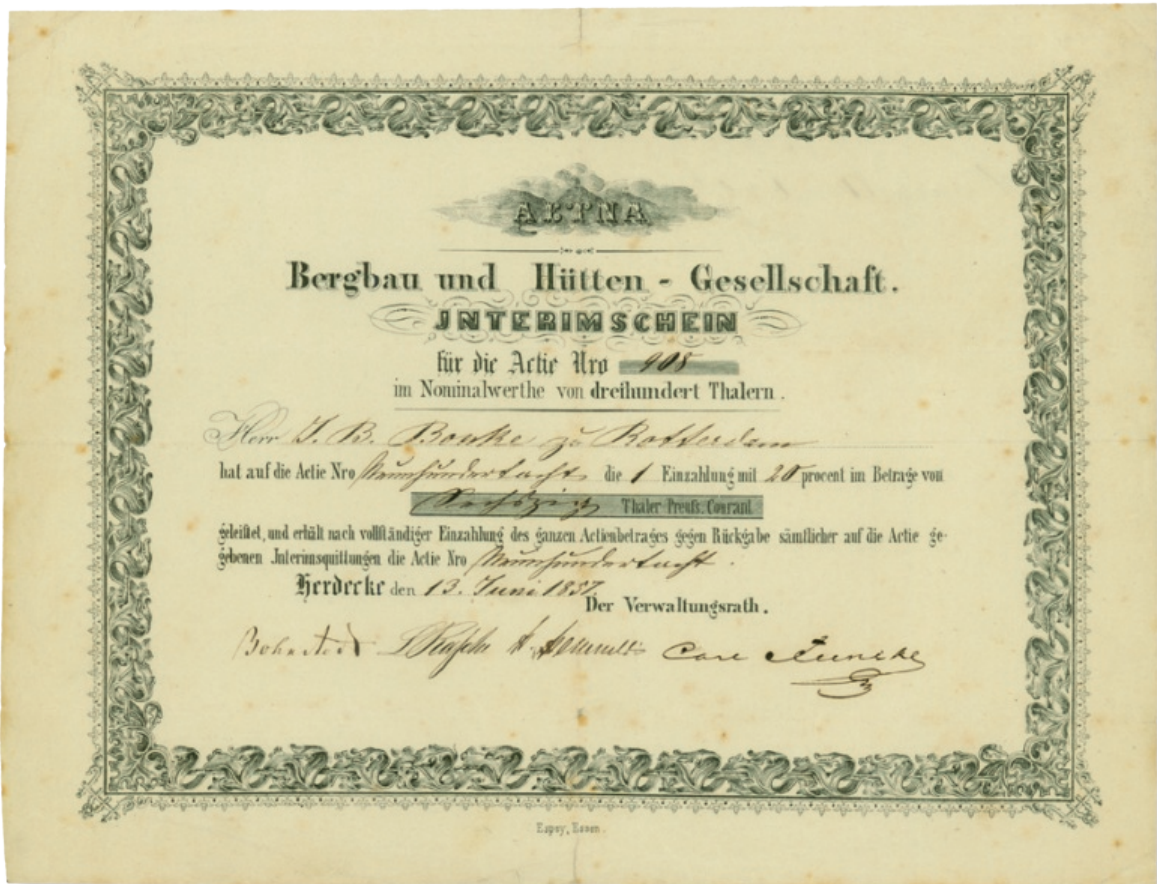 AETNA
Bergbau und Hütten - Gesellschaft.
JNTERIMSCHEIN
für die Actie Nro 908
im Nominalwerthe von dreihundert Thalern.
Herr J. B. Bouke zu Rotterdam
hat auf die Actie Nro Neunhundertacht die 1 Einzahlung mit 20 procent im Betrage von
Sechszig Thaler Preuß. Courant
geleistet, und erhält nach vollständiger Einzahlung des ganzen Actienbetrages gegen Rückgabe sämtlicher auf die Actie ge-
gebenen Jnterimsquittungen die Actie Nro Neunhundertacht.
Herdecke den 13. Juni 1857.
Der Verwaltungsrath.
Carl
Espey, Essen.